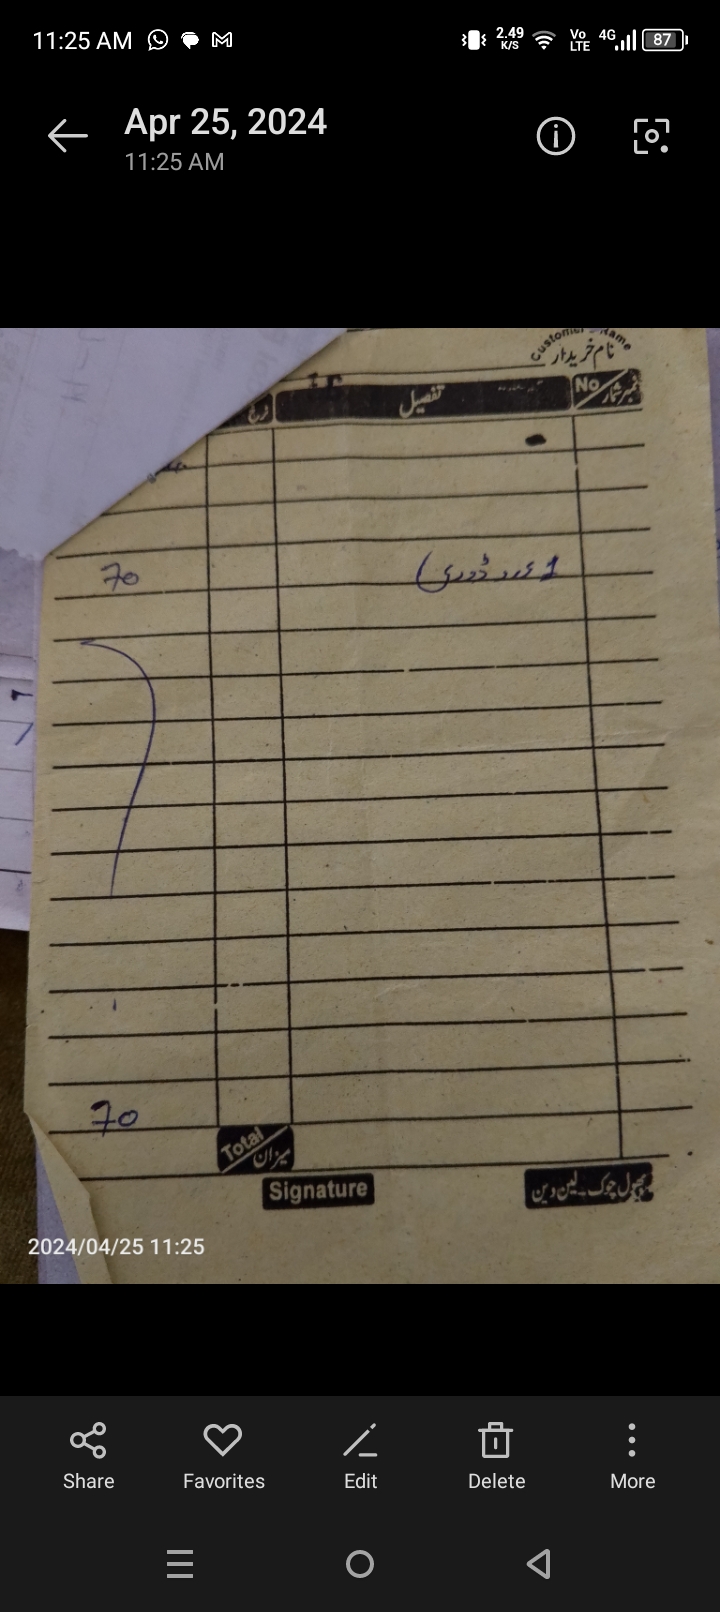 11:25 AM
2.49 K/S Vo LTE 4G 87
Apr 25, 2024
11:25 AM
Customer Name
نام خریدار
No نمبر شمار تفصیل نرخ
1 عدد ڈوری 70
70
Total میزان
Signature بھول چوک لین دین
2024/04/25 11:25
Share Favorites Edit Delete More